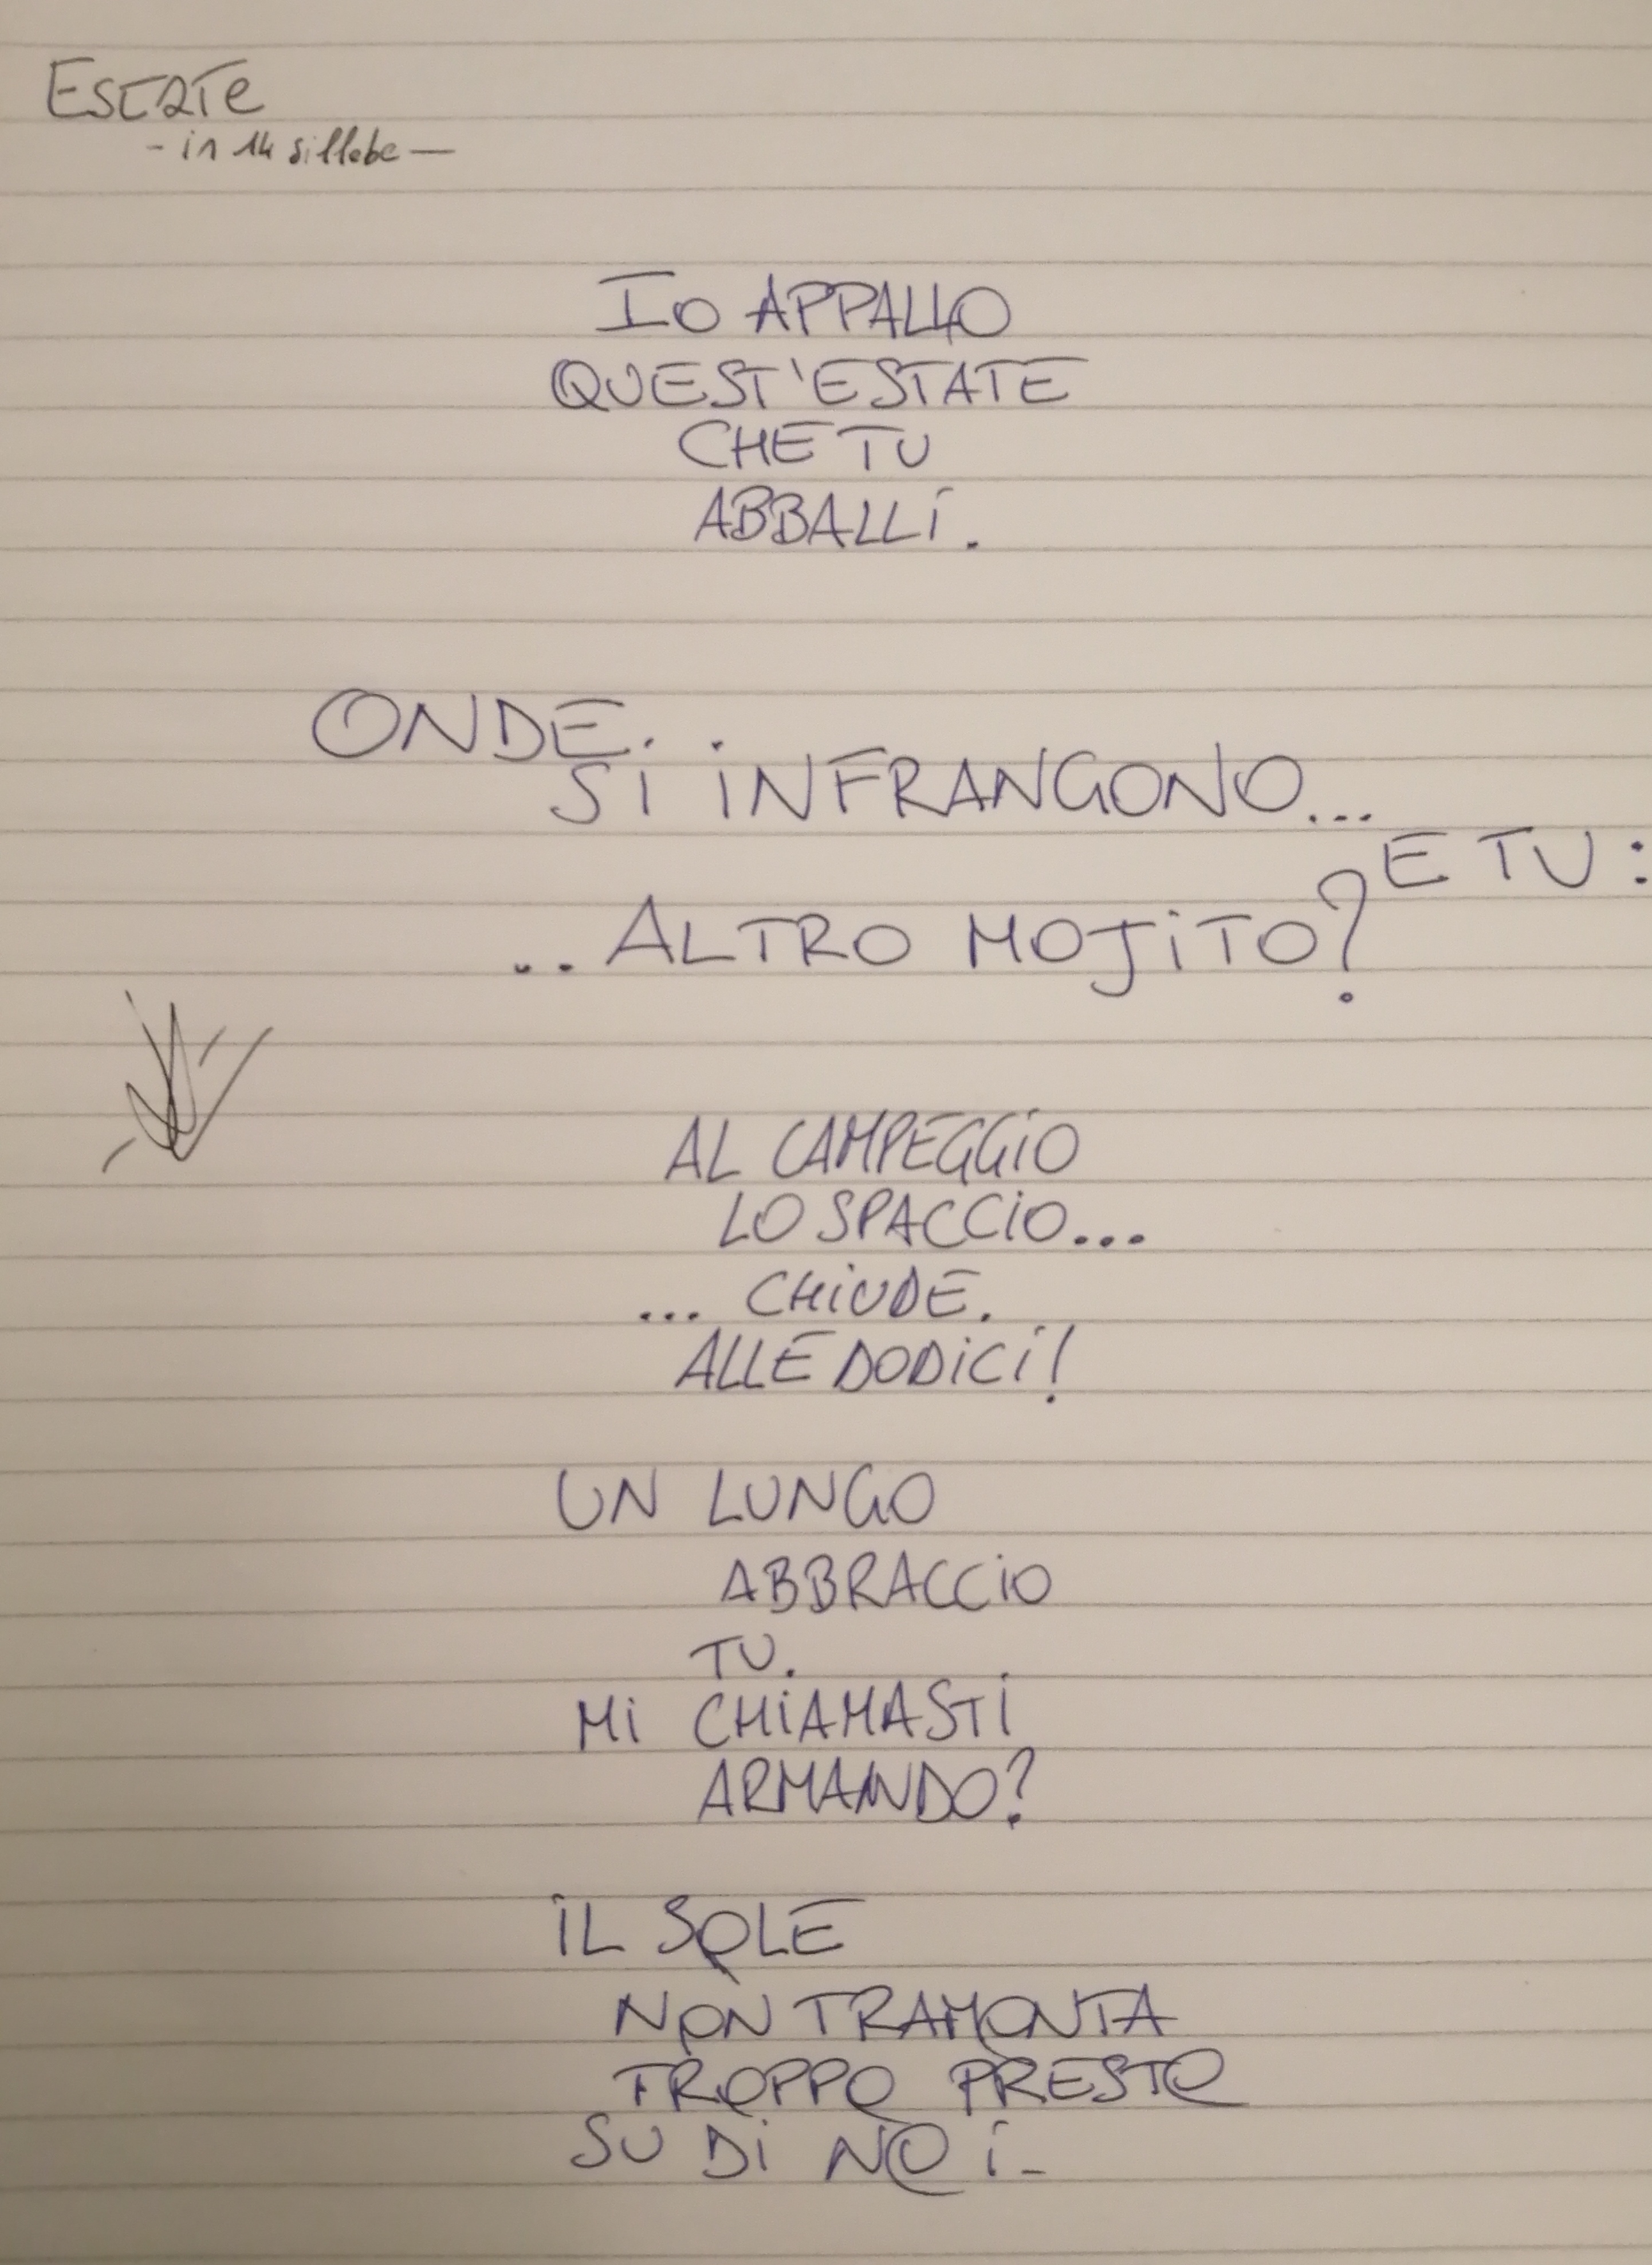 ESTATE
- in 14 sillabe -
IO APPALLO
QUEST'ESTATE
CHE TU
ABBALLI.
ONDE.
SI INFRANGONO...
E TU:
..ALTRO MOJITO?
AL CAMPEGGIO
LO SPACCIO...
... CHIUDE.
ALLE DODICI!
UN LUNGO
ABBRACCIO
TU.
MI CHIAMASTI
ARMANDO?
IL SOLE
NON TRAMONTA
TROPPO PRESTO
SU DI NOI-